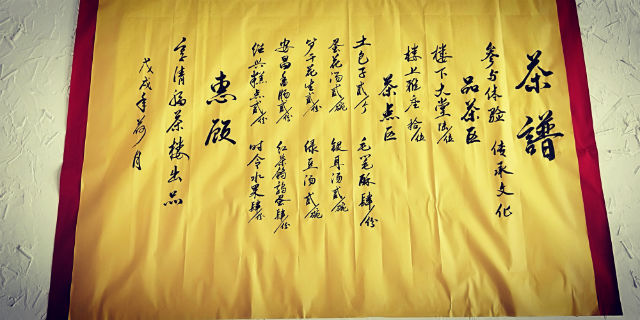 茶譜
参与体验 传承文化
品茶区
楼下大堂伍位
楼上雅座拾位
茶点区
土包子贰个 毛笔酥肆份
茶花汤贰碗 银耳汤贰碗
笋干花生贰份 绿豆汤贰碗
安昌香肠贰份 红茶鹌鹑蛋肆份
绍兴糕点贰份 时令水果肆份
惠顾
享清福茶楼出品
戊戌年荷月